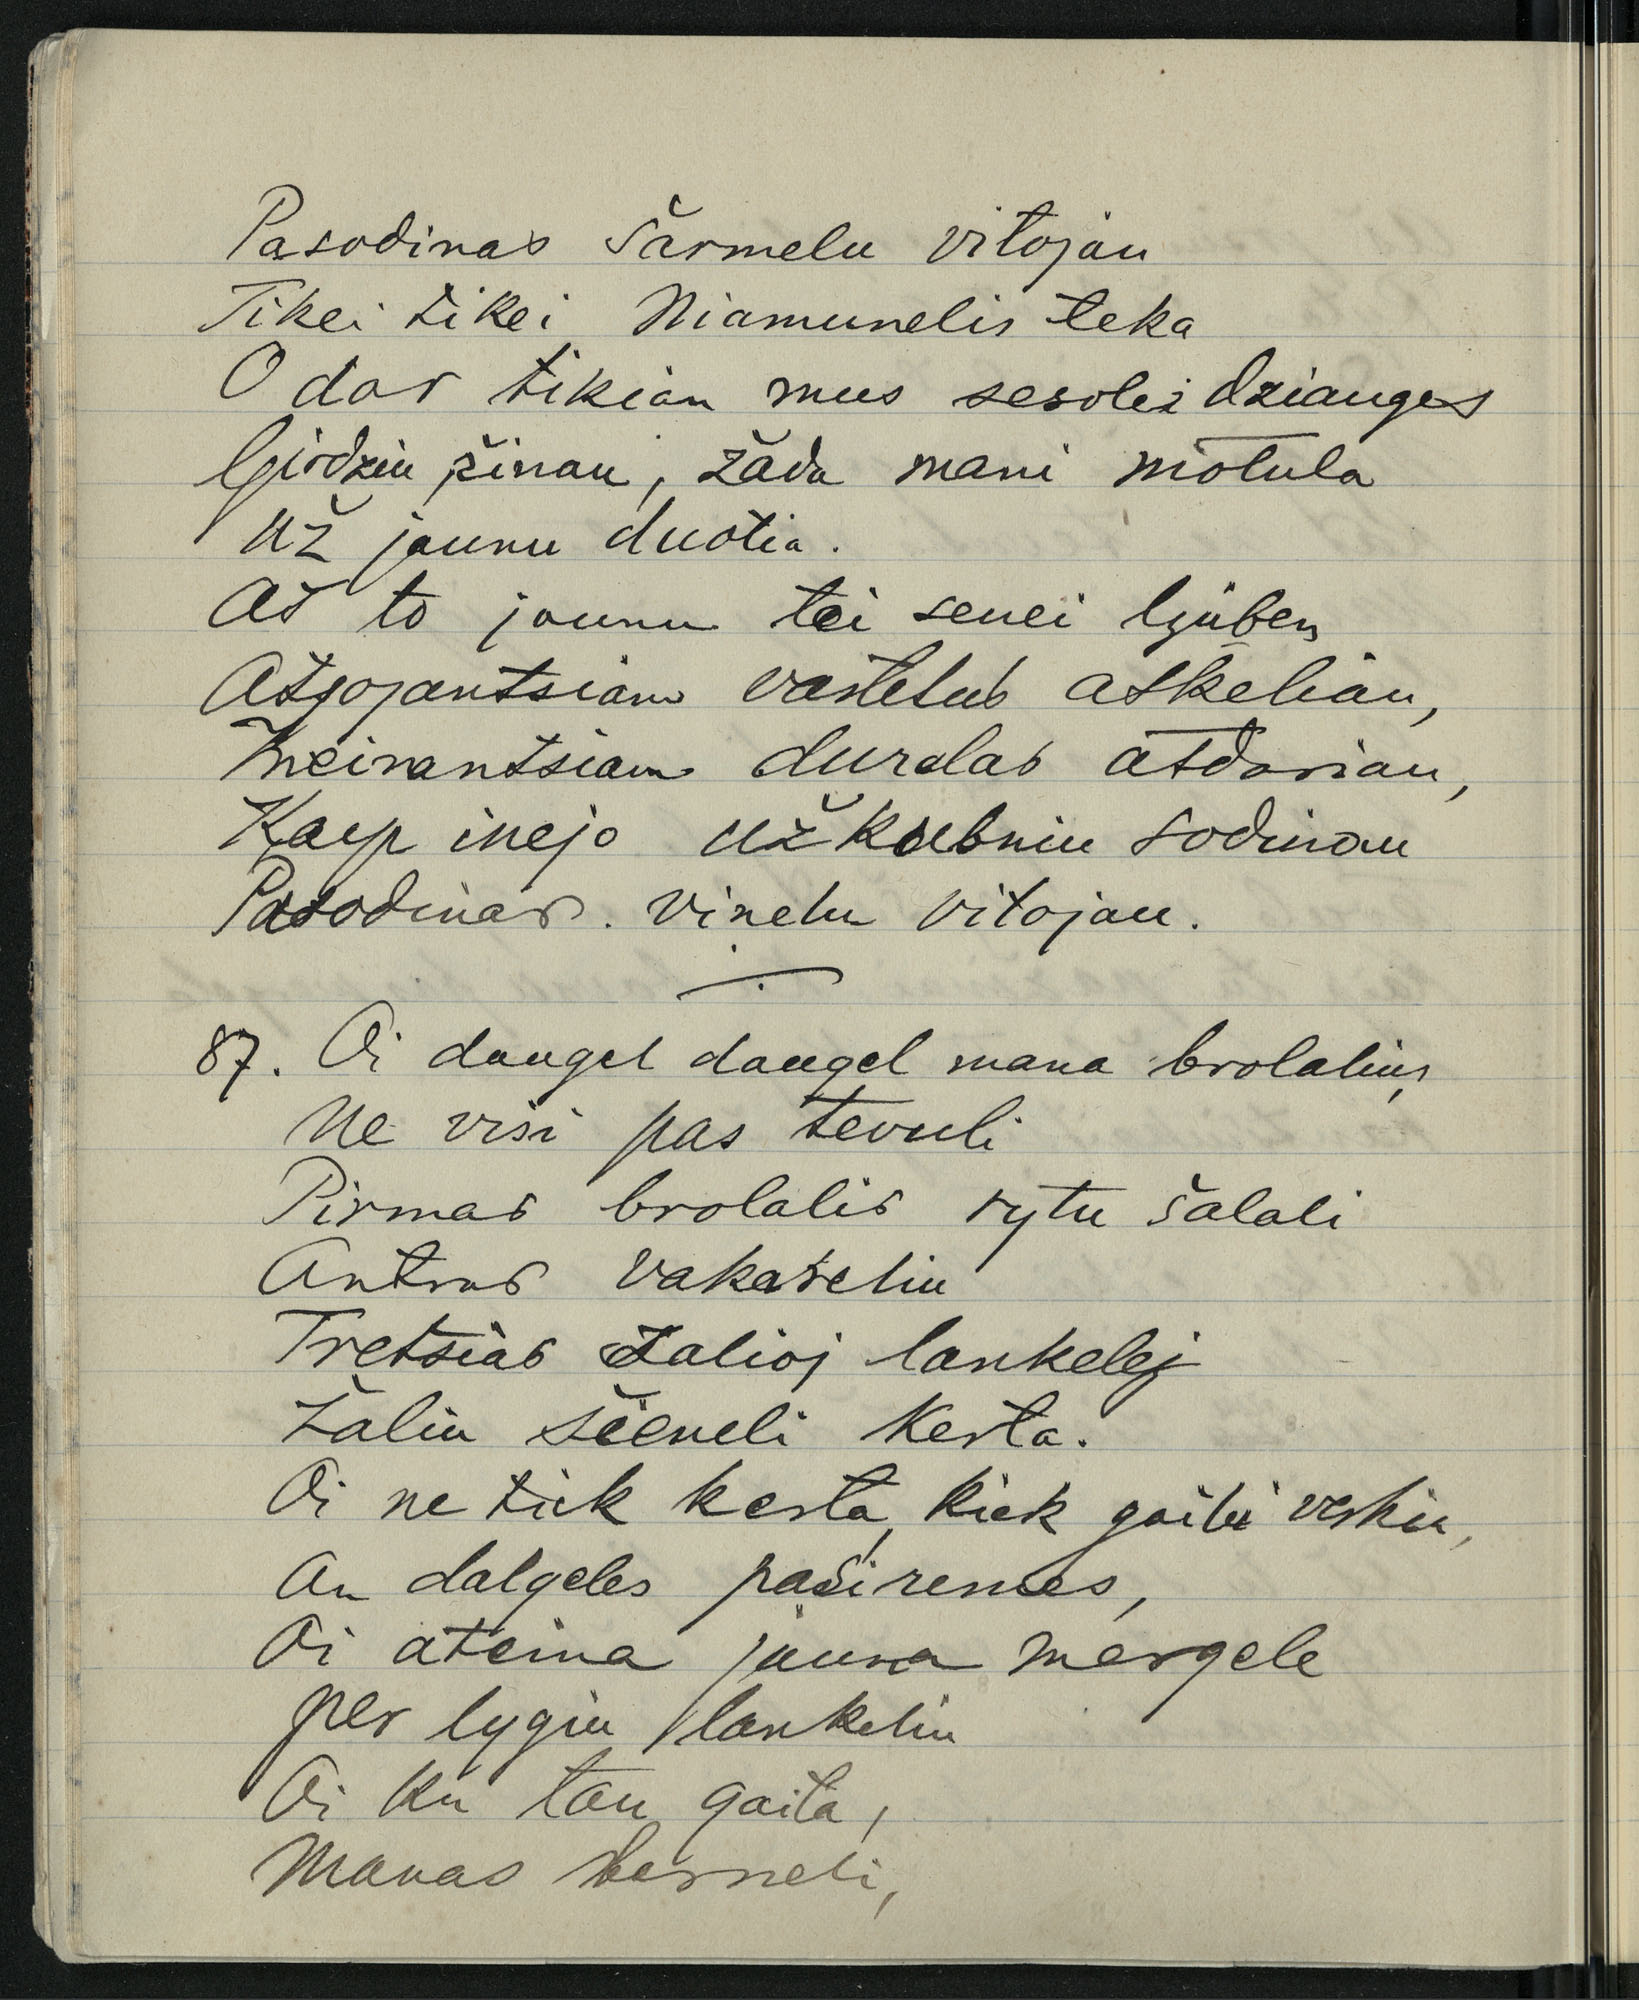 Pasodinas šarmelu vitojau
Tikei tikei Niamunelis teka
O dar tikiau mus sesolei dziauges
Girdziu žinau, žada mani motula
Už jaunu duotia.
Aš to jaunu tei senei ljuben
Atjojantsiam vartelus atkeliau,
Ineinantsiam durelas atdariau,
Kaip inejo užkabniu sodinau
Pasodinas. vinelu vitojau.
87. Oi daugel daugel mana brolalius,
Ne visi pas tevuli
Pirmas brolalis rytu šalali
Antras vakareliu
Tretsias žalioj lankelej
Žaliu šieneli kerta.
Oi ne tiek kerta, kiek gailei verkia,
An dalgeles pasiremes,
Oi ateina jauna mergele
per lygiu lankeliu
Oi ku tau gaila,
Manas berneli,